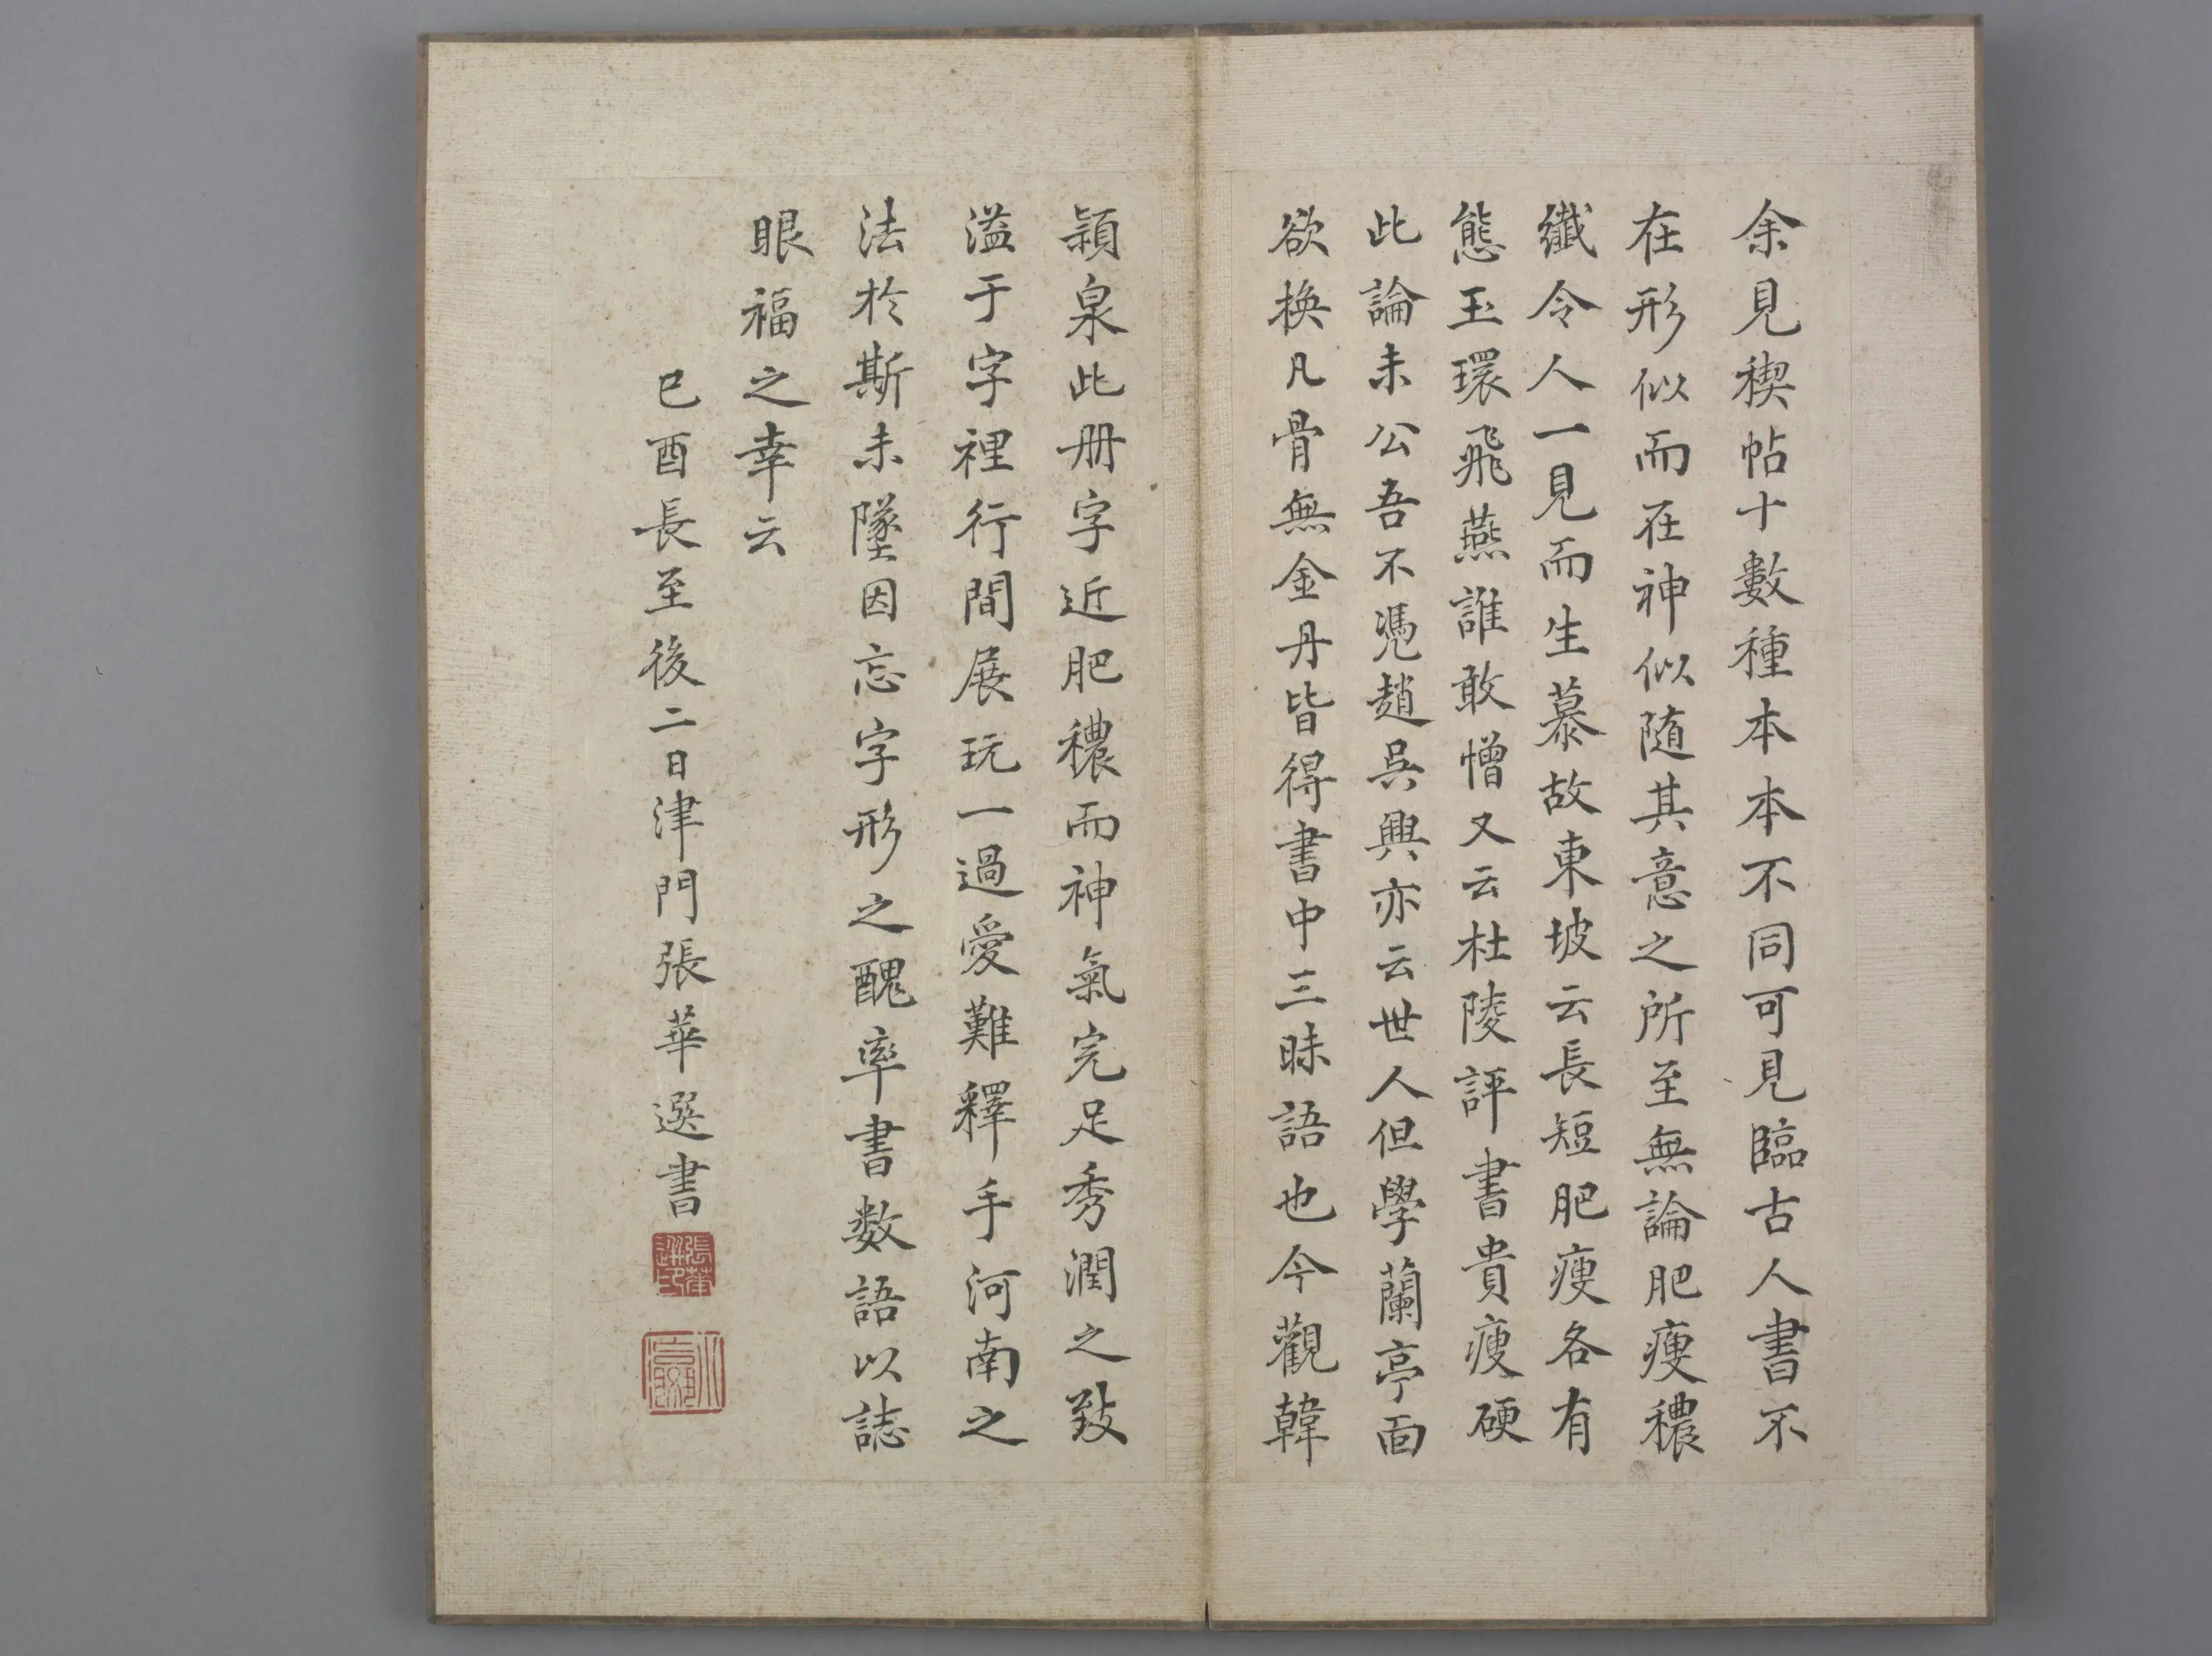 余見禊帖十數種本本不同可見臨古人書不
在形似而在神似随其意之所至無論肥瘦穠
纖令人一見而生慕故東坡云長短肥瘦各有
態玉環飛燕誰敢憎又云杜陵評書貴瘦硬
此論未公吾不凴趙吳興亦云世人但學蘭亭面
欲换凡骨無金丹皆得書中三昧語也今觀韓
潁泉此册字近肥穠而神氣完足秀潤之致
溢于字裡行間展玩一過愛難釋手河南之
法於斯未墜因忘字形之醜率書数語以誌
眼福之幸云
己酉長至後二日津門張華選書